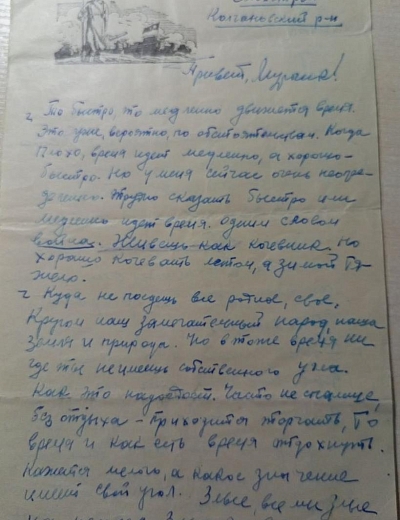 Колгановский р-н
Привет, Шурана!
То быстро, то медленно движется время.
Это уже, вероятно, по обстоятельствам. Когда
плохо, время идет медленно, а хорошо-
быстро. Но у меня сейчас очень неопре-
деленно. Трудно сказать быстро или
медленно идет время. Одним словом
война. Живешь как кочевник. Но
хорошо кочевать летом, а зимой тя-
жело.
Куда не поедешь все родное, свое,
Кругом наш замечательный народ, наша
земля и природа. Но в тоже время ни
где ты не имеешь собственного угла.
Как это надоедает. Часто не спавши,
без отдыха - приходится торчать, то
время и как есть время отдохнуть.
Кажется мелочь, а какое значение
имеет свой угол. Злые, все мы злые